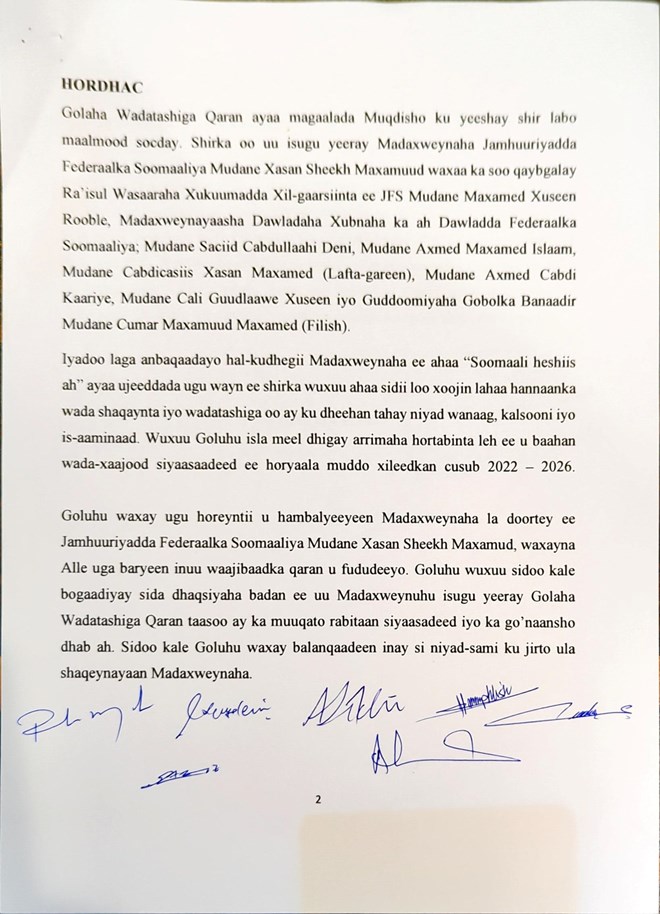 HORDHAC
Golaha Wadatashiga Qaran ayaa magaalada Muqdisho ku yeeshay shir labo
maalmood socday. Shirka oo uu isugu yeeray Madaxweynaha Jamhuuriyadda
Federaalka Soomaaliya Mudane Xasan Sheekh Maxamuud waxaa ka soo qaybgalay
Ra`isul Wasaaraha Xukuumadda Xil-gaarsiinta ee JFS Mudane Maxamed Xuseen
Rooble, Madaxweynayaasha Dawladaha Xubnaha ka ah Dawladda Federaalka
Soomaaliya; Mudane Saciid Cabdullaahi Deni, Mudane Axmed Maxamed Islaam,
Mudane Cabdicasiis Xasan Maxamed (Lafta-gareen), Mudane Axmed Cabdi
Kaariye, Mudane Cali Guudlaawe Xuseen iyo Guddoomiyaha Gobolka Banaadir
Mudane Cumar Maxamuud Maxamed (Filish).
Iyadoo laga anbaqaadayo hal-kudhegii Madaxweynaha ee ahaa “Soomaali heshiis
ah” ayaa ujeeddada ugu wayn ee shirka wuxuu ahaa sidii loo xoojin lahaa hannaanka
wada shaqaynta iyo wadatashiga oo ay ku dheehan tahay niyad wanaag, kalsooni iyo
is-aaminaad. Wuxuu Goluhu isla meel dhigay arrimaha hortabinta leh ee u baahan
wada-xaajood siyaasadeed ee horyaala muddo xileedkan cusub 2022 – 2026.
Goluhu waxay ugu horeyntii u hambalyeeyeen Madaxweynaha la doortey ee
Jamhuuriyadda Federaalka Soomaaliya Mudane Xasan Sheekh Maxamud, waxayna
Alle uga baryeen inuu waajibaadka qaran u fududeeyo. Goluhu wuxuu sidoo kale
bogaadiyay sida dhaqsiyaha badan ee uu Madaxweynuhu isugu yeeray Golaha
Wadatashiga Qaran taasoo ay ka muuqato rabitaan siyaasadeed iyo ka go’naansho
dhab ah. Sidoo kale Goluhu waxay balanqaadeen inay si niyad-sami ku jirto ula
shaqeynayaan Madaxweynaha.
2